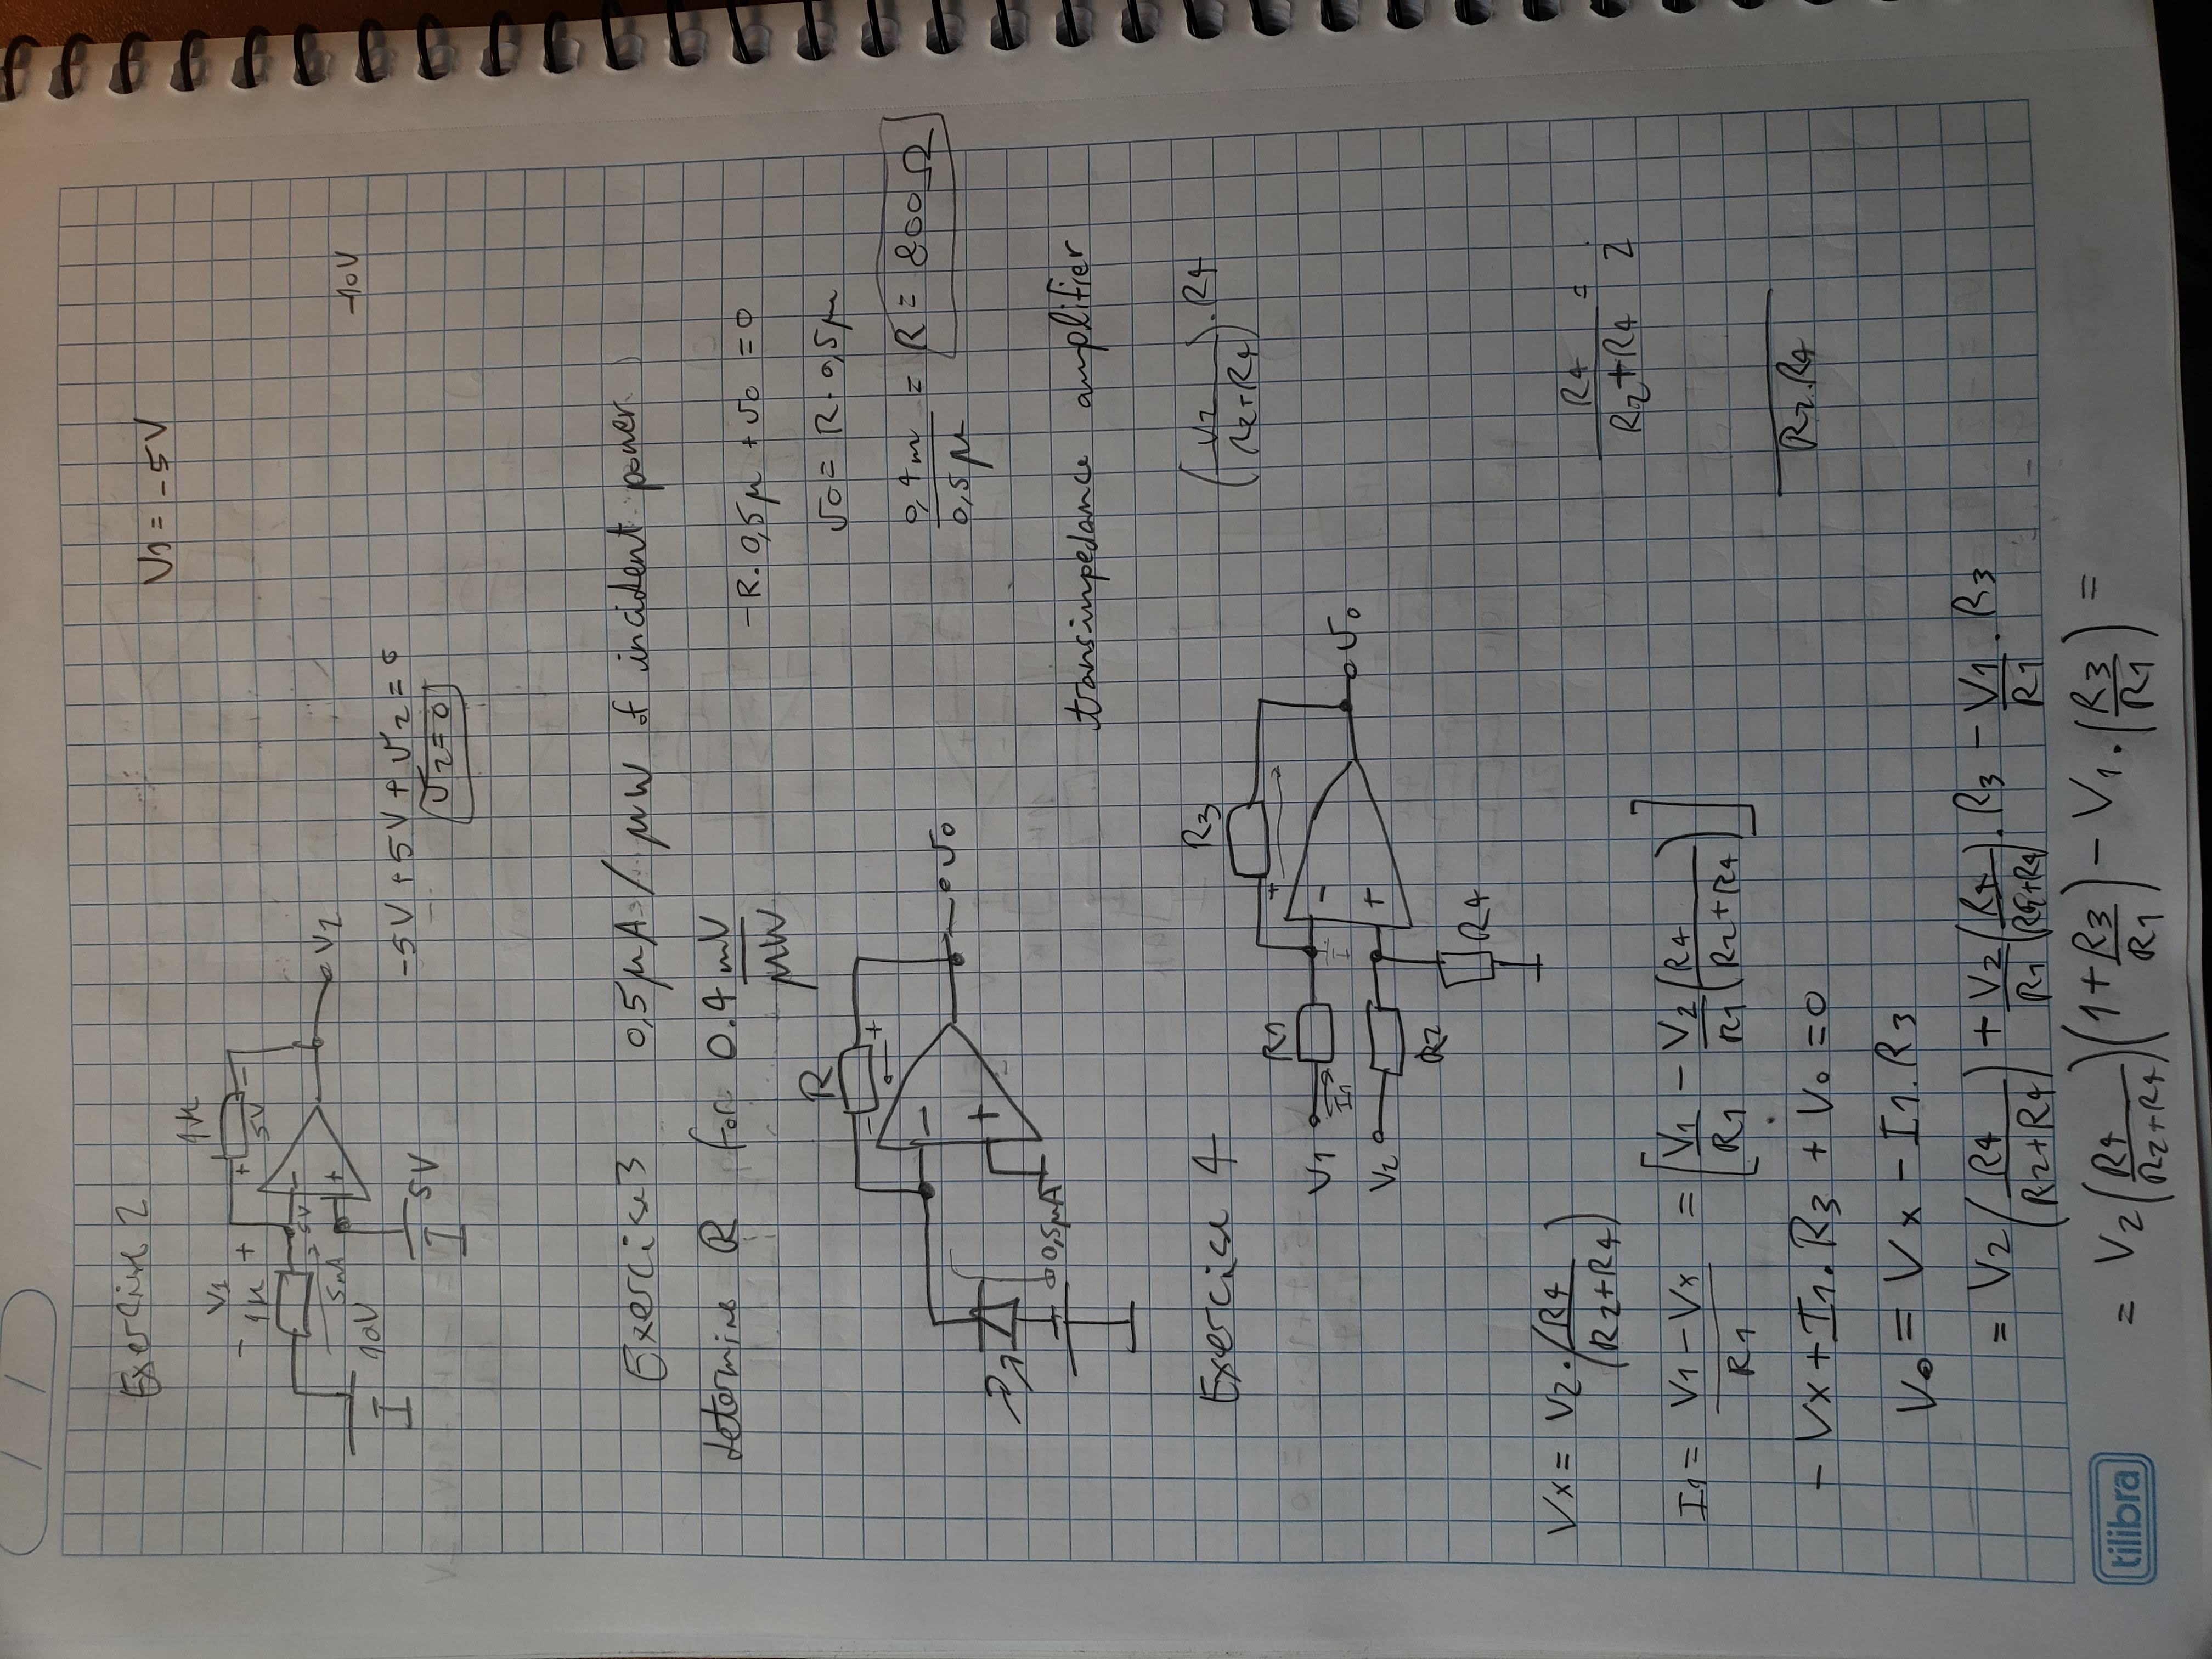 Exercise 2
V1 = -5V
1K
V1
- 1K +
+ 5V -
5V
-
+
5mA
V2
10V
-10V
5V
-5V + 5V + V2 = 0
V2 = 0
Exercise 3 0,5μA / μW of incident power
determine R for 0.4 mV/μW
-R. 0,5μ + vo = 0
R
vo = R. 0,5μ
- +
0,4m/0,5μ = R = 800Ω
-
vo
+
0,5μA
transimpedance amplifier
Exercise 4
R3
(V2/(R2+R4)).R4
+
R1
V1
I1
-
vo
V2
+
R2
R4
Vx = V2.(R4/(R2+R4))
R4/(R2+R4) = 2
I1 = (V1-Vx)/R1 = [V1/R1 - V2/R1 (R4/(R2+R4))]
R2.R4
- Vx + I1.R3 + Vo = 0
Vo = Vx - I1.R3
= V2(R4/(R2+R4)) + V2/R1 (R4/(R2+R4)).R3 - V1/R1 . R3
= V2(R4/(R2+R4))(1+R3/R1) - V1.(R3/R1) =
tilibra